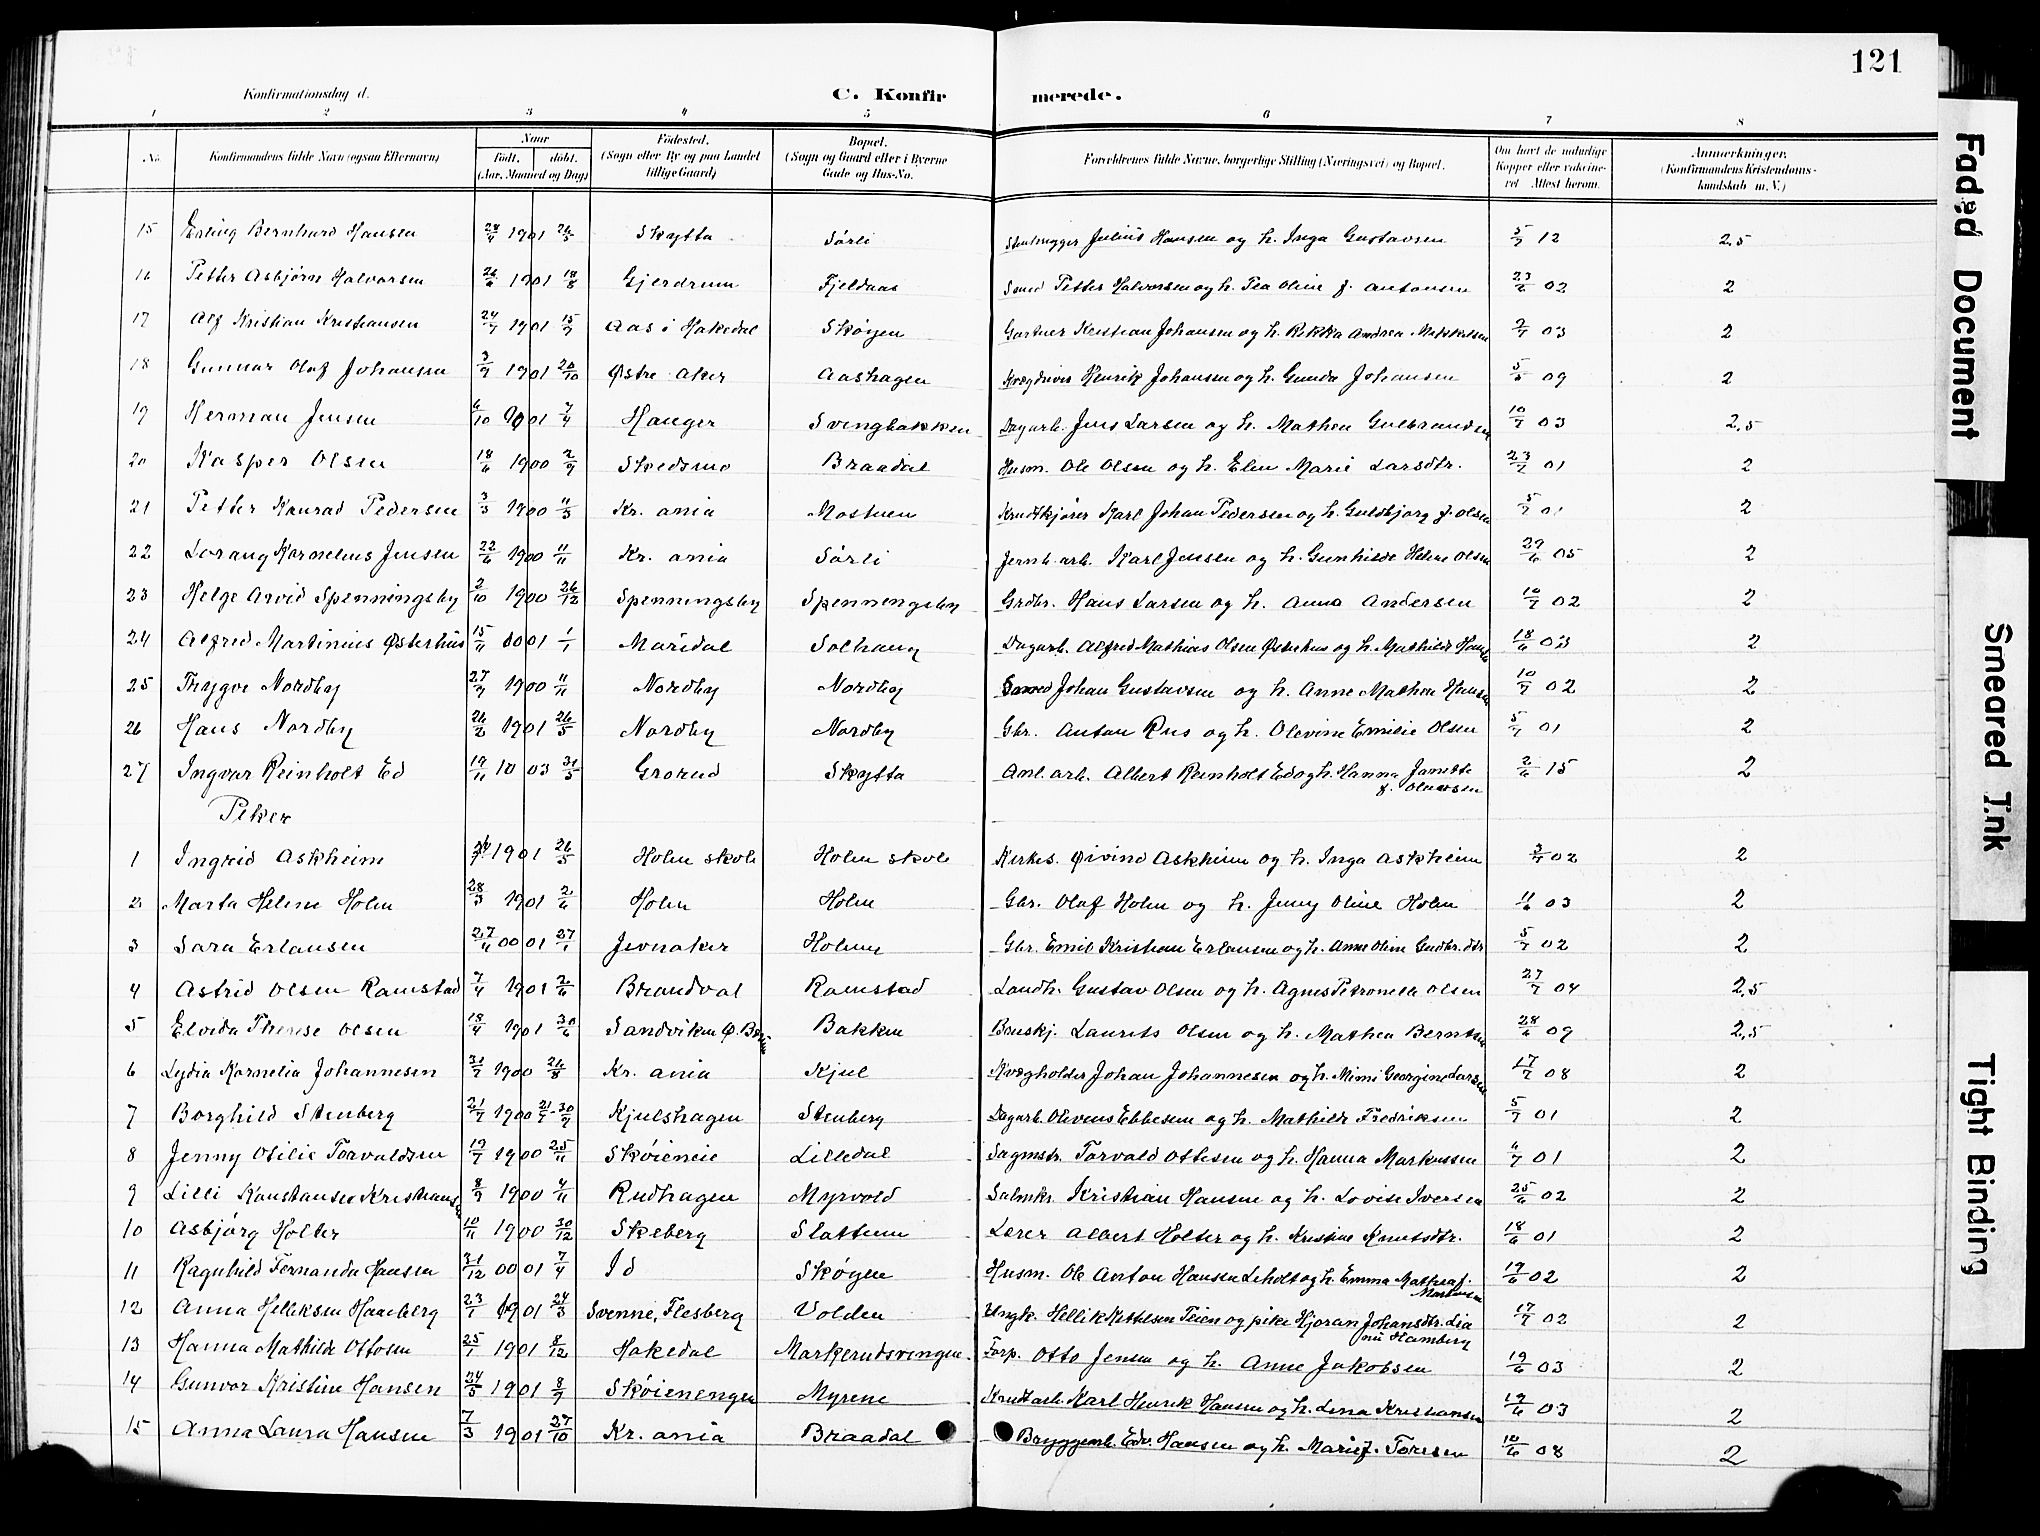 121
Konfirmationsdag d.
C. Konfirmerede.
1 2 3 4 5 6 7 8
No. Konfirmandens fulde Navn (ogsaa Efternavn) Naar født, døbt. (Aar, Maaned og Dag) Fødested. (Sogn eller By og paa Landet tillige Gaard) Bopæl. (Sogn og Gaard eller i Byerne Gade og Hus-No. Forældrenes fulde Navne, borgerlige Stilling (Næringsvei) og Bopæl. Om havt de naturlige Kopper eller vakcineret. Attest herom. Anmærkninger. (Konfirmandens Kristendomskundskab m. V.)
15 Erling Bernhard Hansen 28/4 1901 26/5 Skytta Sørli Stenhugger Julius Hansen og h. Inga Gustavsen 5/7 12 2,5
16 Petter Asbjørn Halvorsen 26/6 1901 18/8 Gjerdrum Fjeldaas Smed Petter Halvorsen og h. Pea Oline f. Antonsen 23/6 02 2
17 Alf Kristian Kristiansen 24/7 1901 15/9 Aas i Hakedal Skøyen Gartner Kristian Johansen og h. Rikka Andrea 2/7 03 2
18 Gunnar Olaf Johansen 3/9 1901 20/10 Østre Aker Aashagen Henrik Johansen og h. Gunda Johansen 5/5 09 2
19 Herman Jensen 6/10 01 7/4 Hauger Svingbakken Dagarb. Jens Larsen og h. Mathea Gulbrandsen 10/7 03 2,5
20 Kasper Olsen 18/6 1900 2/9 Skedsmo Braadal Husm. Ole Olsen og h. Elen Marie Larsdtr. 23/7 01 2
21 Petter Konrad Pedersen 3/3 1900 11/3 Kr.ania Mostuen Krudtkjører Karl Johan Pedersen og h. Guldbjørg f. Olsen 5/7 01 2
22 Lorang Kornelius Jensen 22/6 1900 11/11 Kr.ania Sørli Jernb.arb. Karl Jensen og h. Gunhilde Helene Olsen 29/6 05 2
23 Helge Arvid Spenningsby 2/10 1900 26/12 Spenningsby Spenningsby Grdbr. Hans Larsen og h. Anna Andersen 10/7 02 2
24 Alfred Martinius Østerhus 15/11 00 01 1/1 Maridal Solhaug Dagarb. Alfred Mathias Olsen Østerhus og h. Mathilde Hansen 18/6 03 2
25 Thrygve Nordby 27/9 1900 11/11 Nordby Nordby Smed Johan Gustavsen og h. Anne Mathea Hansen 10/7 02 2
26 Hans Nordby 26/2 1901 26/5 Nordby Nordby Gbr. Anton Rus og h. Olevine Emilie Olsen 5/7 01 2
27 Ingvar Reinholt Ed 19/11 03 31/5 Grorud Skytta Anl.arb. Albert Reinholt Ed og h. Hanna Janette
f. Olaussen 2/6 15 2
Piker
1 Ingrid Askheim 1901 26/5 Holm skole Holm skole Kirkes. Øivind Askheim og h. Inga Askheim 3/7 02 2
2 Marta Helene Holm 28/3 1901 2/6 Holm Holm Gbr. Olaf Holm og h. Jenny Oline Holm 11/6 03 2
3 Sara Erlansen 27/11 00 01 27/1 Jevnaker Holum Gbr. Emil Kristian Erlansen og h. Anne Oline Gudbr.dtr 5/7 02 2
4 Astrid Olsen Ramstad 7/4 1901 2/6 Brandval Ramstad Landh. Gustav Olsen og h. Agnes Petronella Olsen 27/7 04 2,5
5 Elvida Therese Olsen 18/4 1901 30/6 Sandviken Ø. Bærum Bakken Bruskj. Laurits Olsen og h. Mathea Berntsen 28/6 09 2,5
6 Lydia Kornelia Johannesen 31/7 1900 26/8 Kr.ania Kjul Kvægholder Johan Johannesen og h. Mimi Georgine Larsen 17/7 08 2
7 Borghild Stenberg 21/7 1900 21/7-30/9 Kjulshagen Stenberg Dagarb. Olevens Ebbesen og h. Mathilde Fredriksen 5/7 01 2
8 Jenny Otilie Torvaldsen 19/7 1900 25/11 Skøieneie Lilledal Sagmstr. Torvald Ottesen og h. Hanna Markussen 4/7 01 2
9 Lilli Konstanse Kristiansen 8/9 1900 4/11 Rudhagen Myrvold Salmkr. Kristian Hansen og h. Lovise Iversen 25/6 02 2
10 Asbjørg Holter 10/11 1900 30/12 Skeberg Slattum Lærer Albert Holter og h. Kristine Knutsdtr. 18/6 01 2
11 Ragnhild Fernanda Hansen 31/12 00 01 7/4 Id Skøyen Husm. Ole Anton Hansen Leholt og h. Emma Mathea f.
Martinsen 19/6 02 2
12 Anna Helliksen Hamberg 23/1 1901 24/3 Svenne, Flesberg Volden Ungk. Hellik Kittelsen Teien og pike Hjøran Johansdtr. Lia
nu Hamberg 17/7 02 2
13 Hanna Mathilde Ottosen 25/1 1901 8/12 Hakedal Markerudsvingen Forp. Otto Jensen og h. Anne Jakobsen 19/6 03 2
14 Gunvor Kristine Hansen 24/5 1901 8/9 Skøienengen Myrene Krudtarb. Karl Henrik Hansen og h. Lina Kristiansen 19/6 03 2
15 Anna Laura Hansen 7/3 1901 27/10 Kr.ania Braadal Bryggearb. Edv. Hansen og h. Marie f. Toresen 10/6 08 2
Faded Document
Smeared Ink
Tight Binding